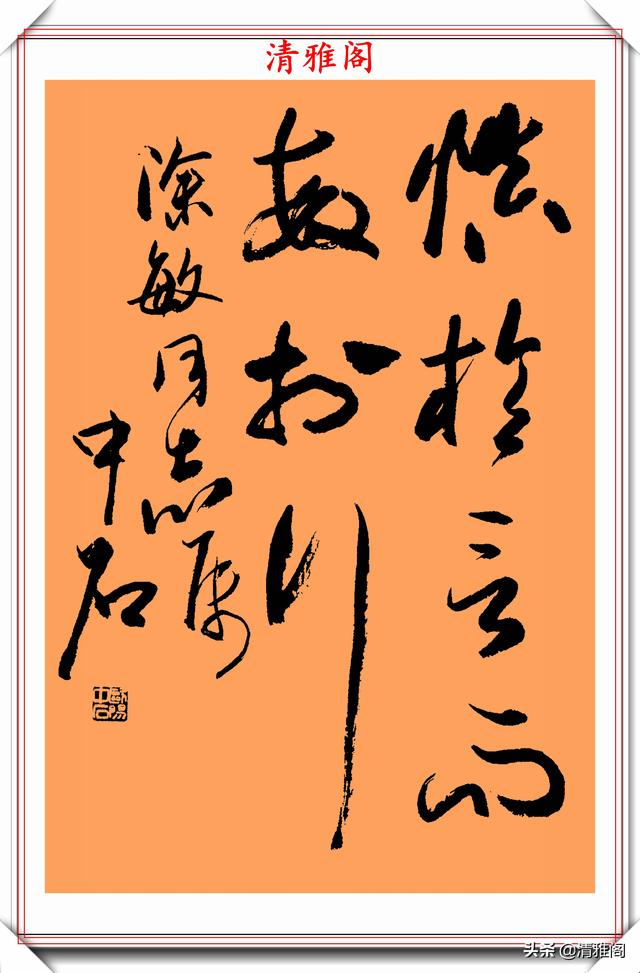 清雅阁
慎於言而
敏於行
敏同志属
中石
歐陽中石
头条 @清雅阁